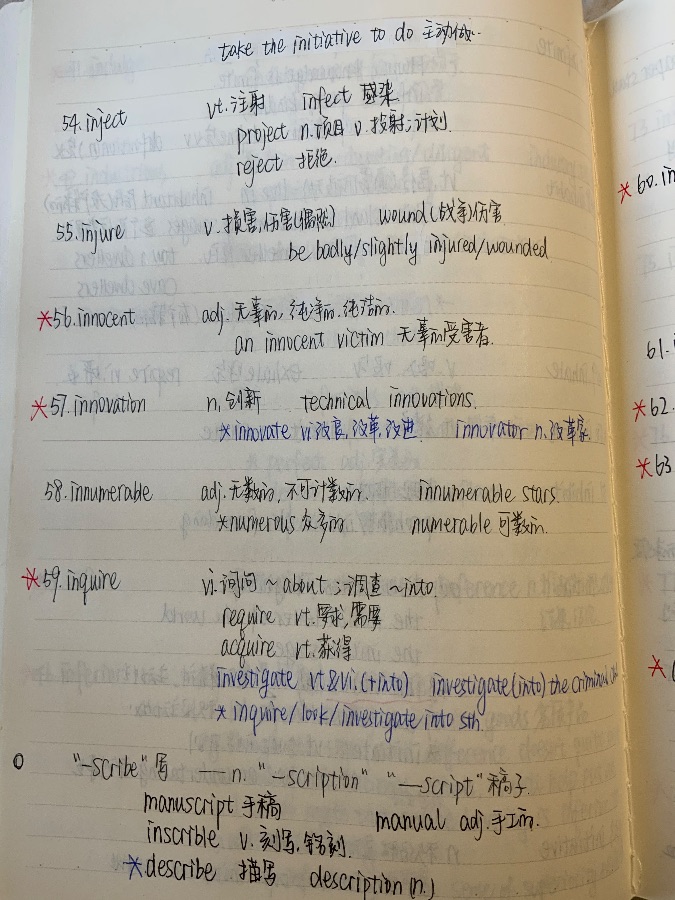 take the initiative to do 主动做…
54. inject vt. 注射 infect 感染
project n. 项目 v. 投射; 计划
reject 拒绝
55. injure v. 损害, 伤害(偶然) wound (战争)伤害
be badly/slightly injured/wounded
*56. innocent adj. 无辜的, 纯净的, 纯洁的
an innocent victim 无辜的受害者.
*57. innovation n. 创新 technical innovations.
*innovate vi. 改良, 改革, 改进 innovator n. 改革家
58. innumerable adj. 无数的, 不可计数的. innumerable stars.
*numerous 众多的 numerable 可数的.
*59. inquire vi. 询问 ~ about ; 调查 ~ into
require vt. 要求, 需要
acquire vt. 获得
investigate vt & vi. (+into) investigate (into) the criminal
* inquire/look/investigate into sth.
"-scribe" 写 — n. "-scription" "-script" 稿子.
manuscript 手稿 manual adj. 手工的.
inscrible v. 刻写, 铭刻.
*describe 描写 description (n.)
*60. in
61.
*62.
*63